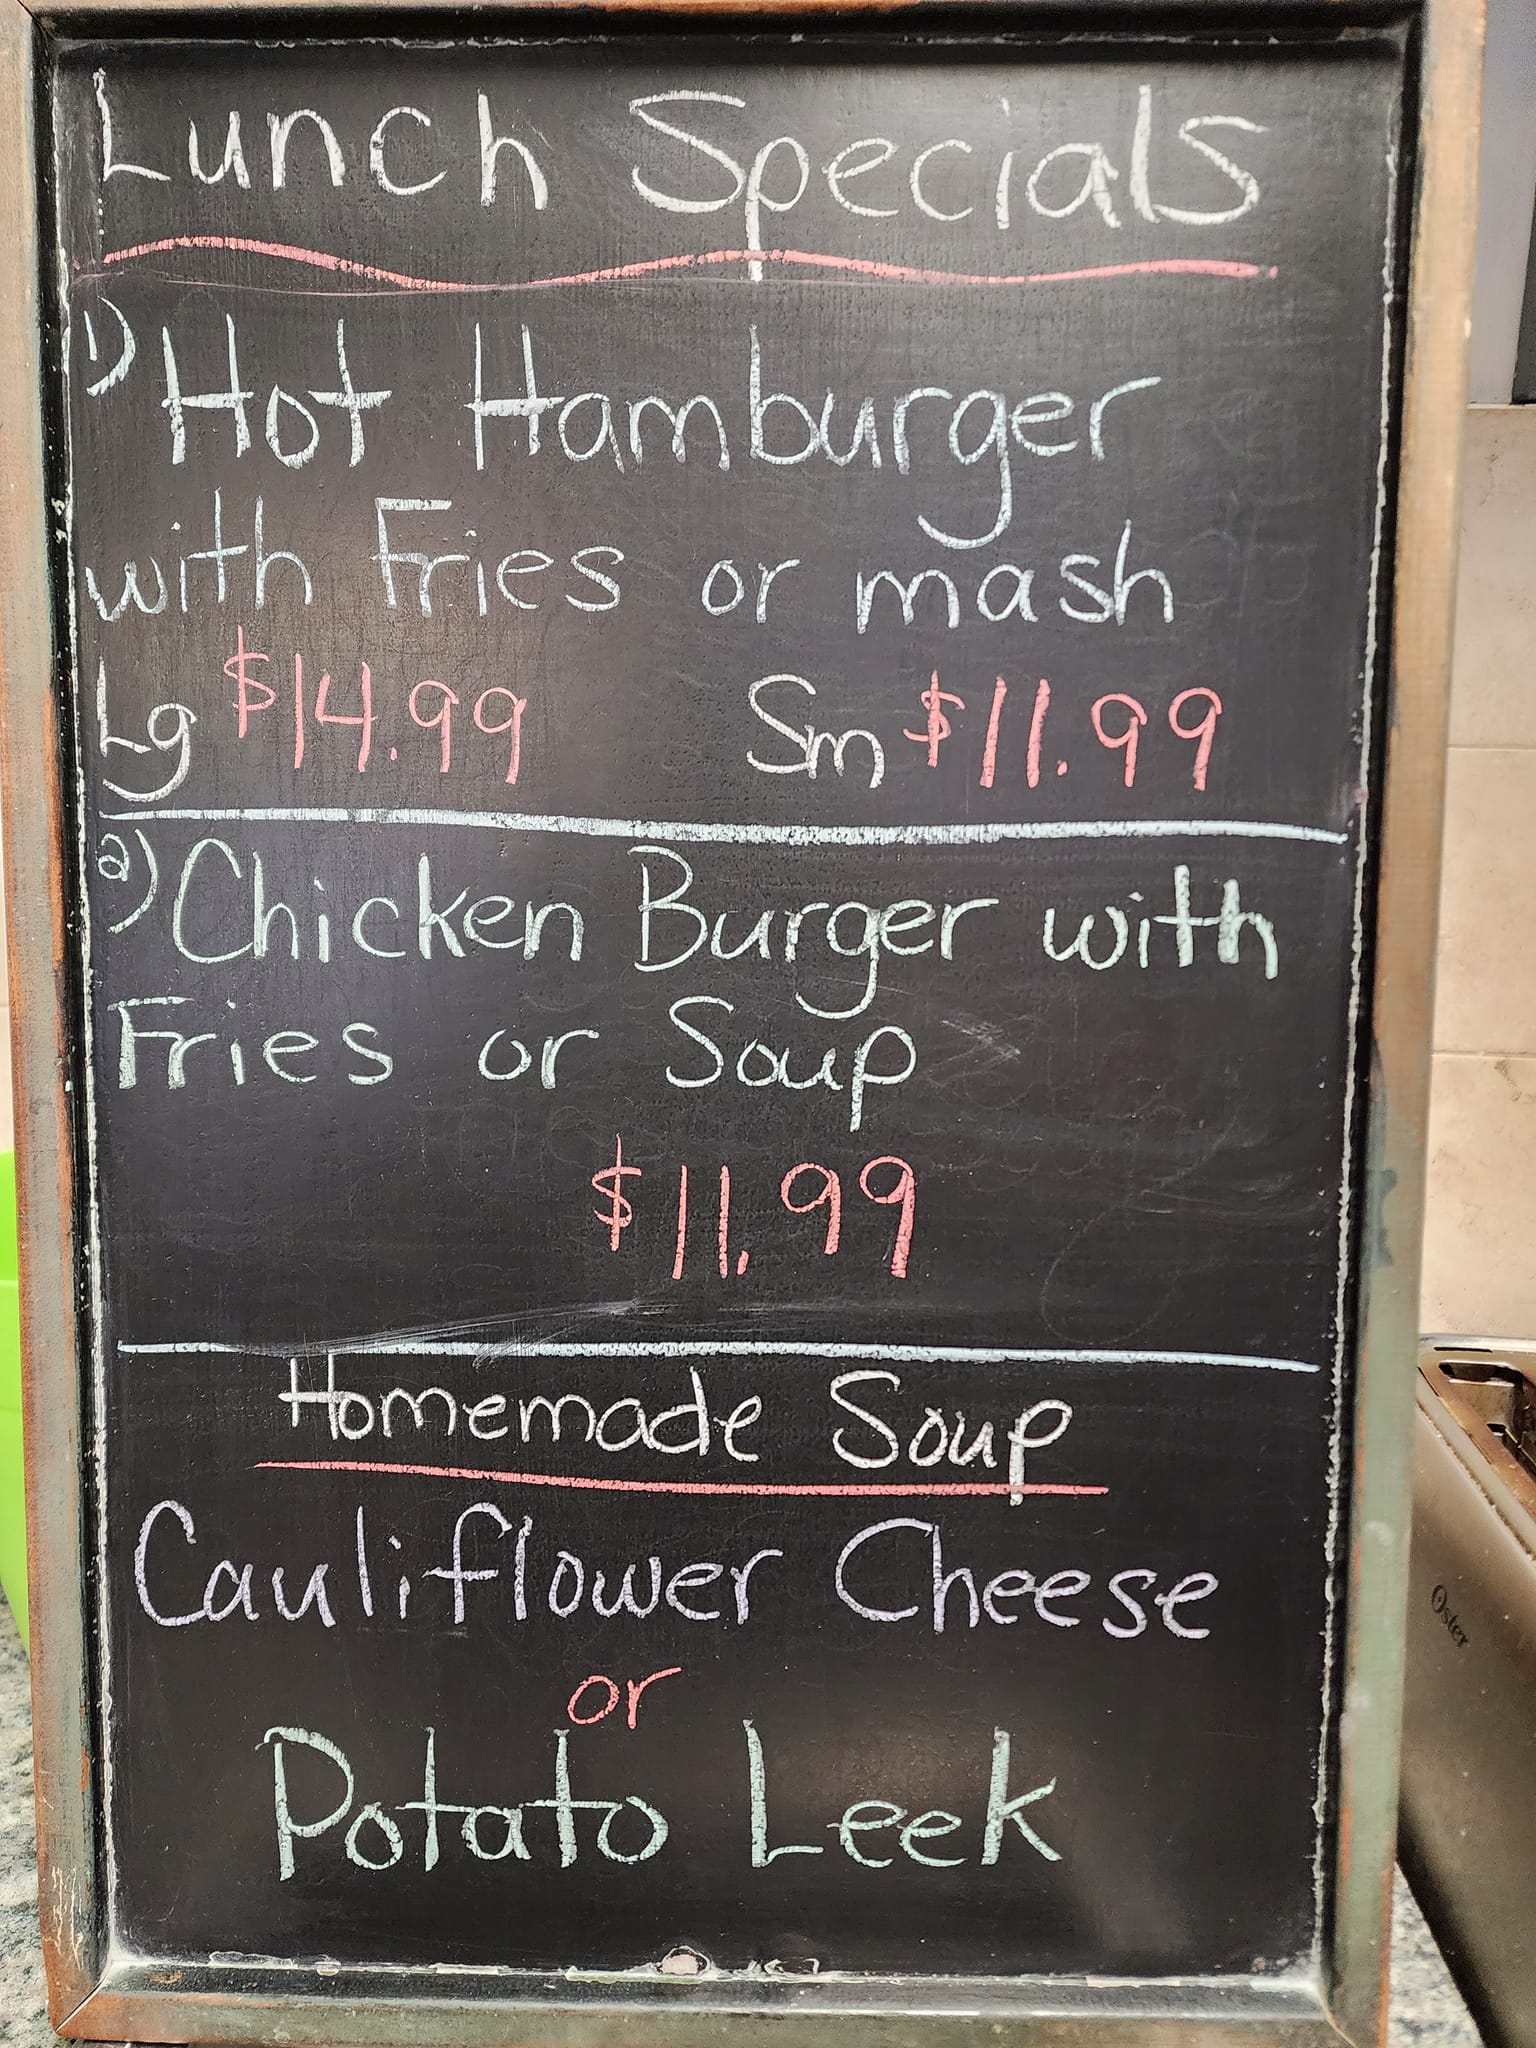 Lunch Specials
1) Hot Hamburger
with Fries or mash
Lg $14.99 Sm $11.99
2) Chicken Burger with
Fries or Soup
$11.99
Homemade Soup
Cauliflower Cheese
or
Potato Leek
Oster